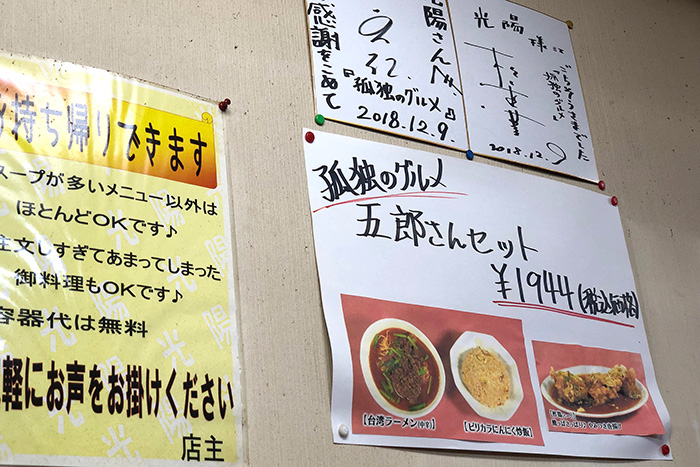 持ち帰りできます
スープが多いメニュー以外は
ほとんどOKです♪
注文しすぎてあまってしまった
御料理もOKです♪
容器代は無料
軽にお声をお掛けください
店主
光陽
陽さんへ
感謝をこめて
『孤独のグルメ』
2018.12.9.
光陽様江
ごちそうさまでした
孤独のグルメ
2018.12.9
孤独のグルメ
五郎さんセット
¥1944(税込価格)
【台湾ラーメン(中辛)】
【ピリカラにんにく炒飯】